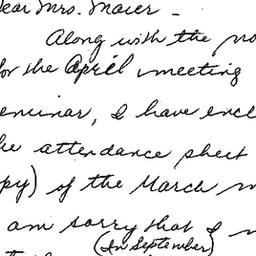 Dear Mrs. Maier -
Along with the no
for the April meeting
eminar, I have encl
he attendance sheet
py) of the March m
am sorry that I
(In September)